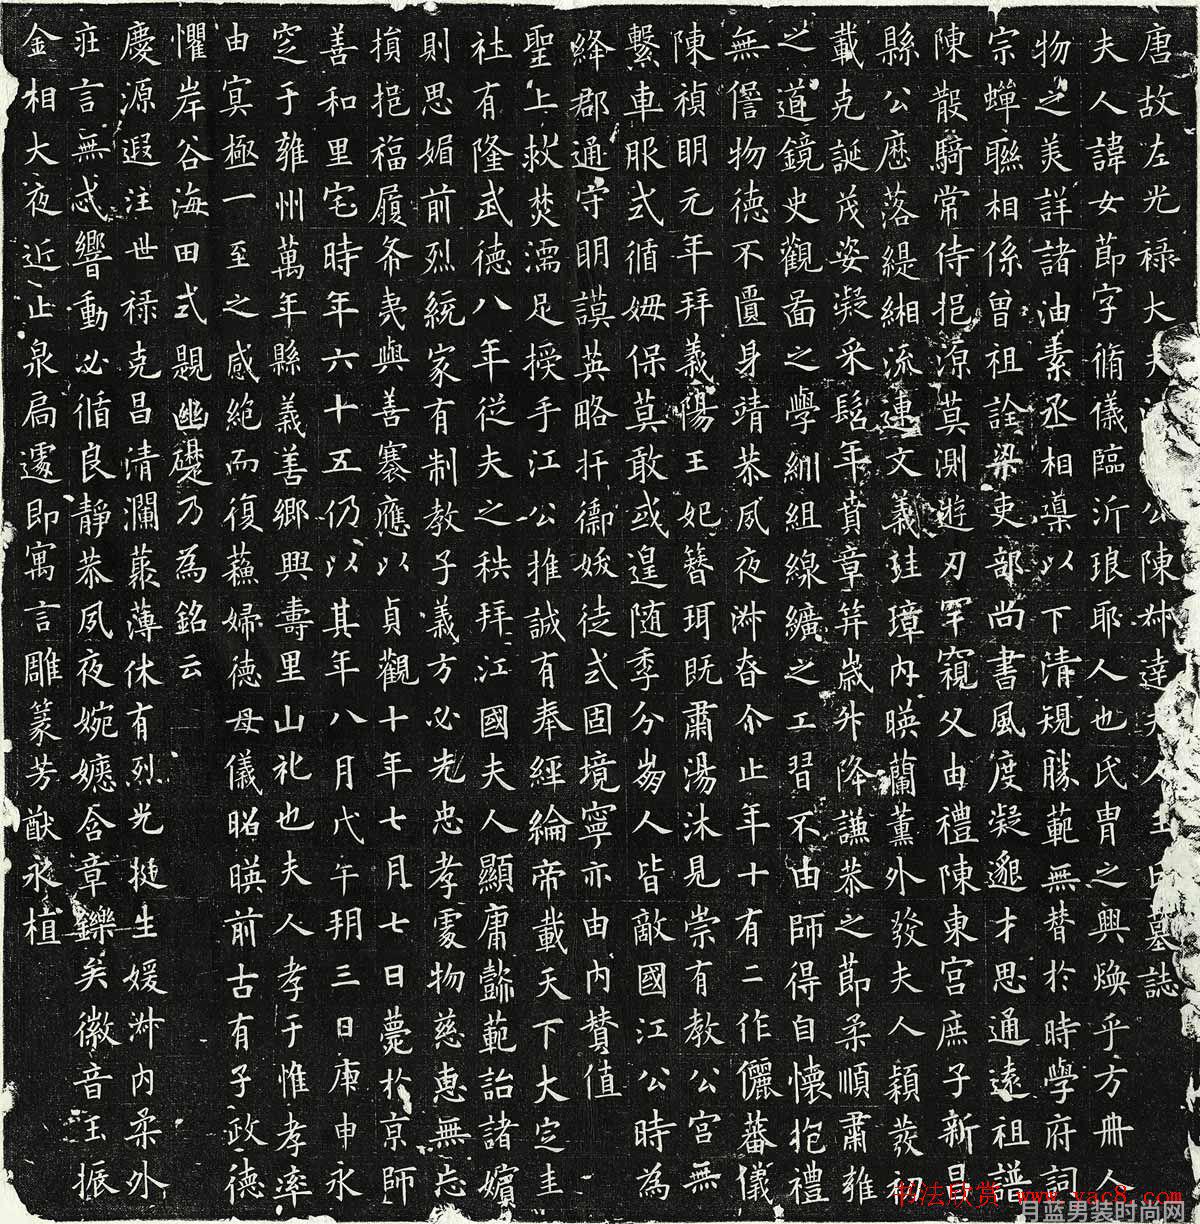 唐故左光禄大夫江公陳叔達夫人王氏墓誌
夫人諱女莭字脩儀臨沂琅耶人也氏胄之興煥乎方冊人
物之美詳諸油素丞相導以下清規勝範無替於時學府詞
宗蟬聯相係曾祖詮梁吏部尚書風度凝邈才思通遠祖譜
陳散騎常侍挹源莫測遊刃罕窺父由禮陳東宮庶子新昌
縣公歷落緹緗流連文義珪璋內暎蘭薰外發夫人穎發初
載克誕茂姿凝采髫年賁章笄歲外降謙恭之莭柔順肅雍
之道鏡史觀啚之學絍組線纊之工習不由師得自懷抱禮
無僭物德不匱身靖恭夙夜淋昚尒止年十有二作儷蕃儀
陳禎明元年拜義陽王妃簪珥既肅湯沐見崇有教公宮無
繫車服式循姆保莫敢或遑随季分崩人皆敵國江公時為
絳郡通守明謨英略扞禦媛徒式固境寧亦由內贊值
聖上救焚濡足授手江公推誠有奉經綸帝載天下大定圭
社有隆武德八年従夫之秩拜江國夫人顯庸懿範詒諸嬪
則思媚前烈統家有制教子義方必先忠孝處物慈惠無忘
損挹福履斯夷與善褰應以貞觀十年七月七日薨於京師
善和里宅時年六十五仍以其年八月戊午朔三日庚申永
窆于雍州萬年縣義善鄉興壽里山礼也夫人孝于惟孝率
由冥極一至之感絶而復蘓婦德母儀昭暎前古有子政德
懼岸谷海田式題幽礎乃為銘云
慶源遐注世禄克昌清瀾藂薄休有烈光挺生媛淋內柔外
莊言無忒響動必循良靜恭夙夜婉嫕含章鑠矣徽音玉振
金相大夜近止泉扃遽即寓言雕篆芳猷永植
书法欣赏 www.yac8.com
月蓝男装时尚网